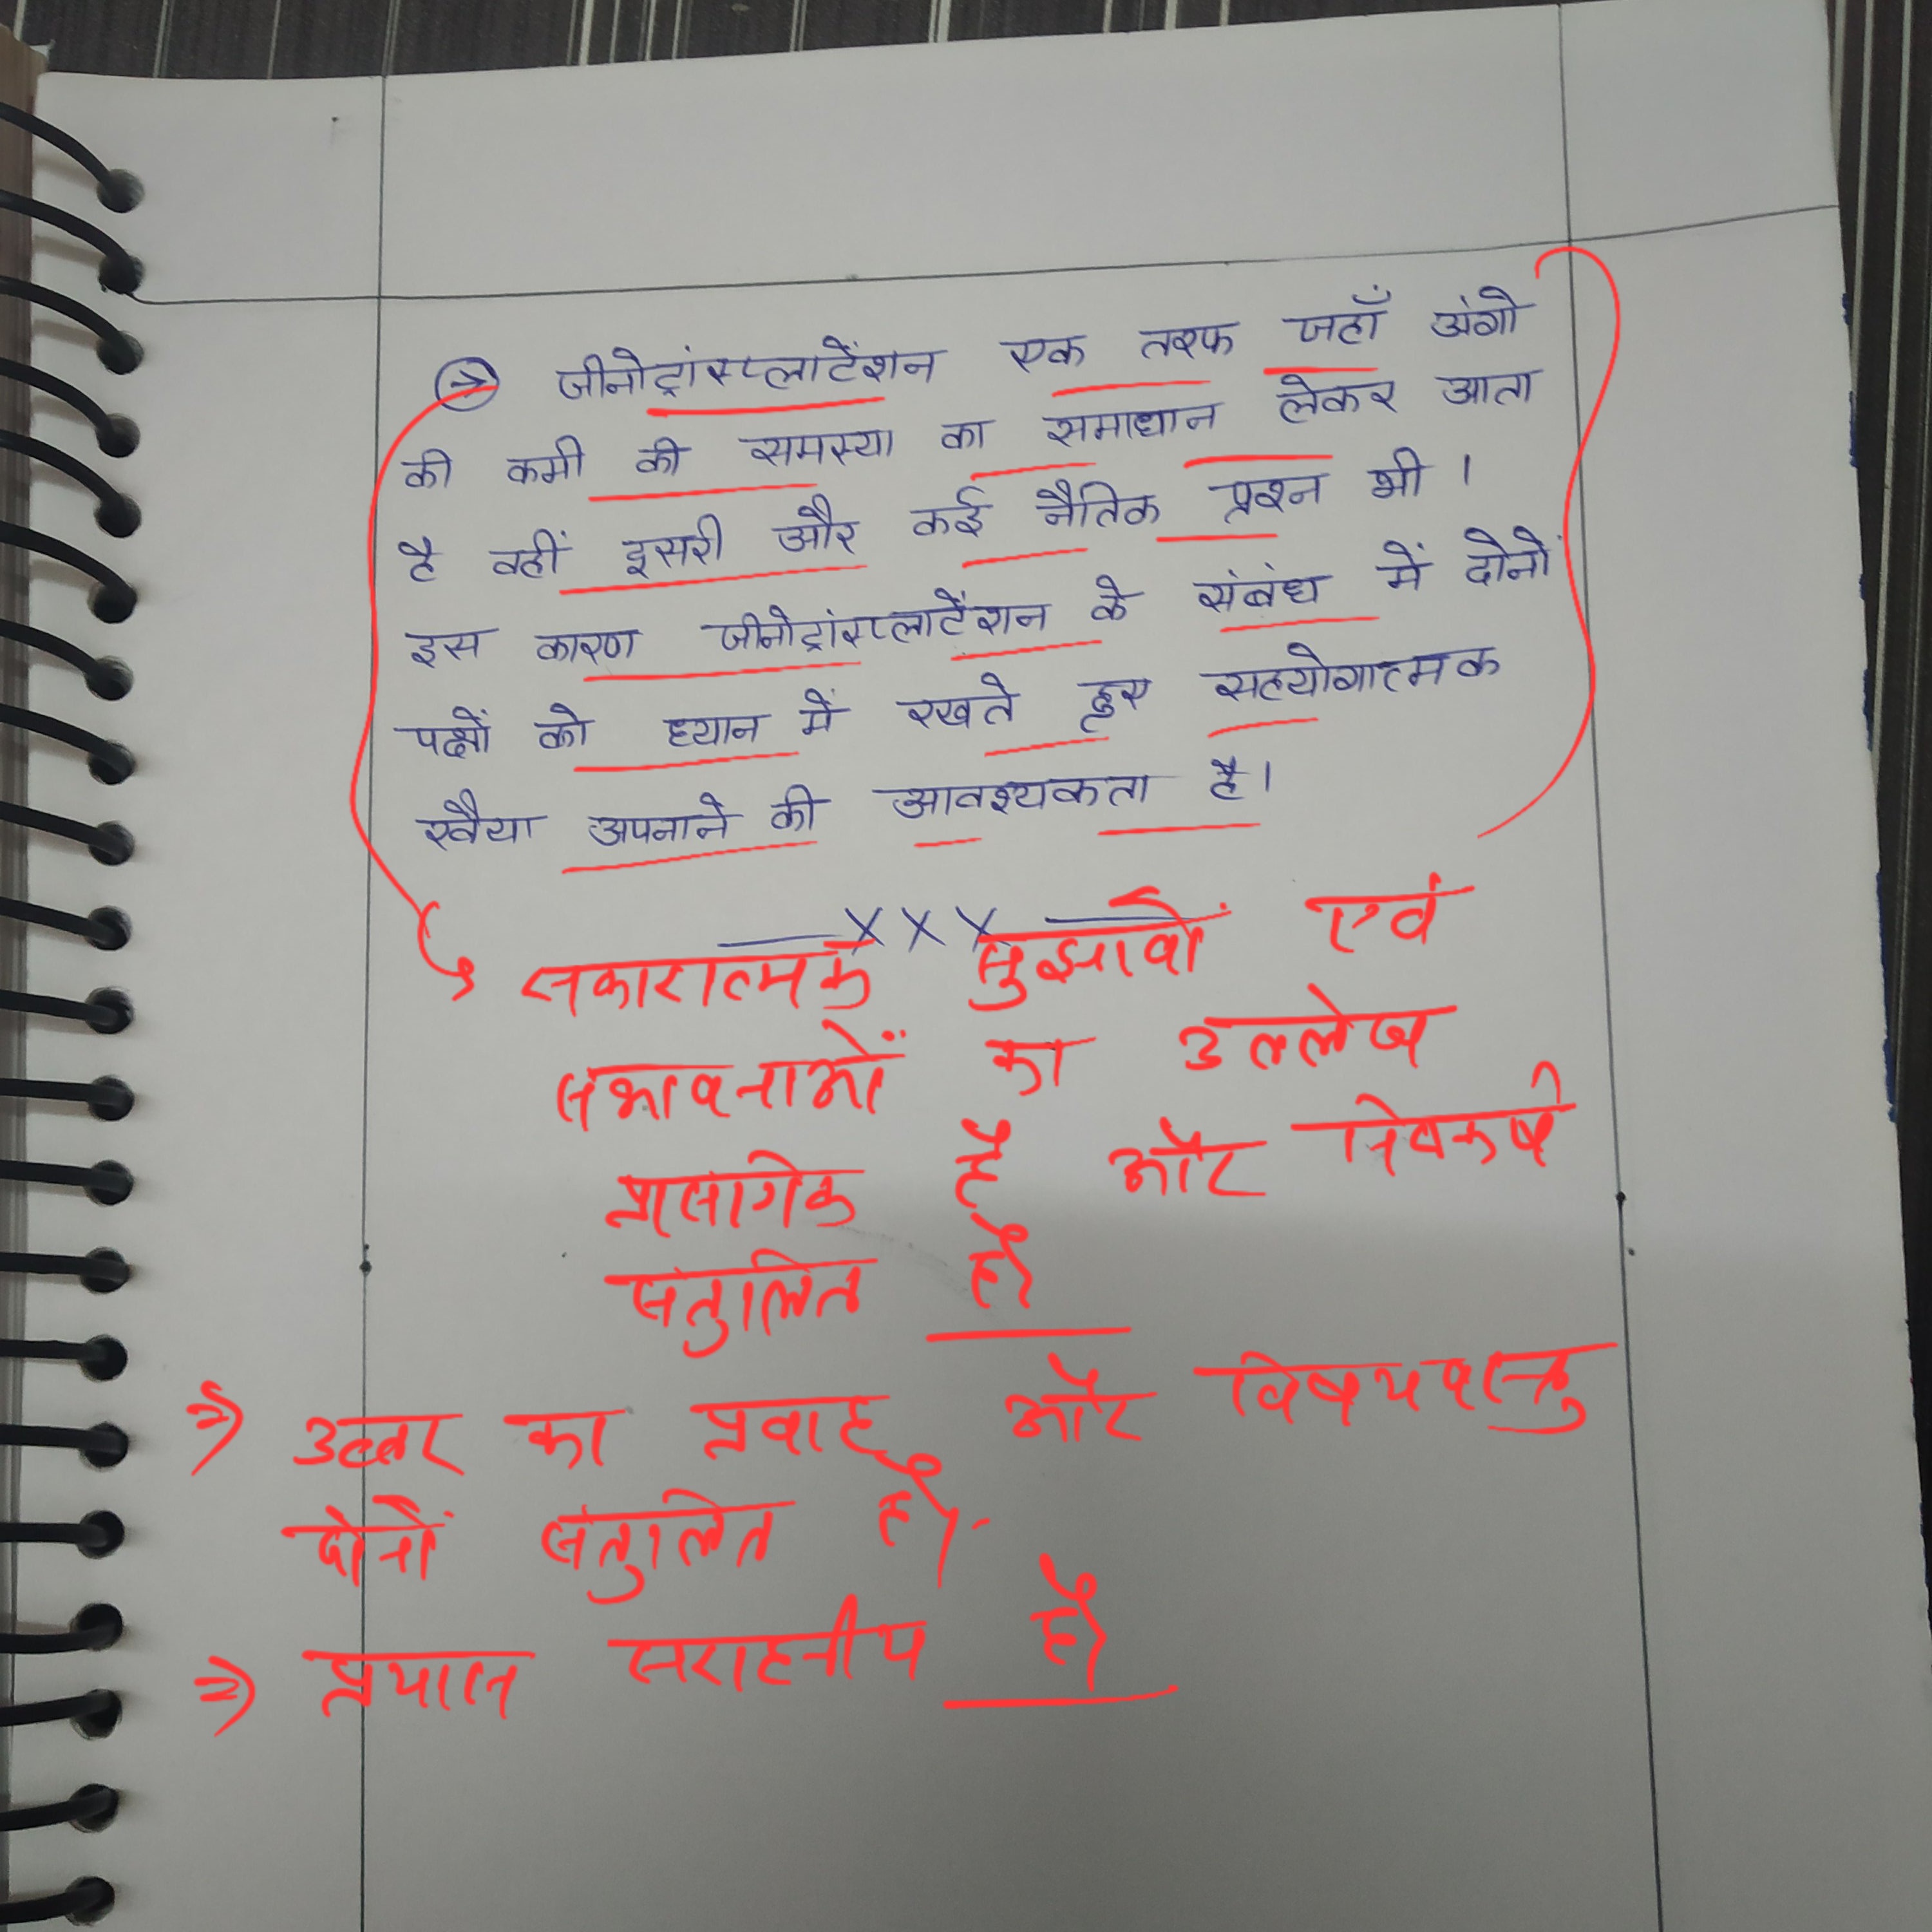 → जीनोट्रांस्प्लाटेंशन एक तरफ जहाँ अंगो
की कमी की समस्या का समाधान लेकर आता
है वहीं दूसरी और कई नैतिक प्रश्न भी ।
इस कारण जीनोट्रांस्प्लाटेंशन के संबंध में दोनों
पक्षों को ध्यान में रखते हुए सहयोगात्मक
रवैया अपनाने की आवश्यकता है।
—XXX—
सकारात्मक सुझावों एवं
सभावनाओं का उल्लेख
प्रासगिक है और निष्कर्ष
सतुलित है।
⇒ उत्तर का प्रवाह और विषयवस्तु
दोनों सतुलित है।
⇒ प्रयास सराहनीय है।